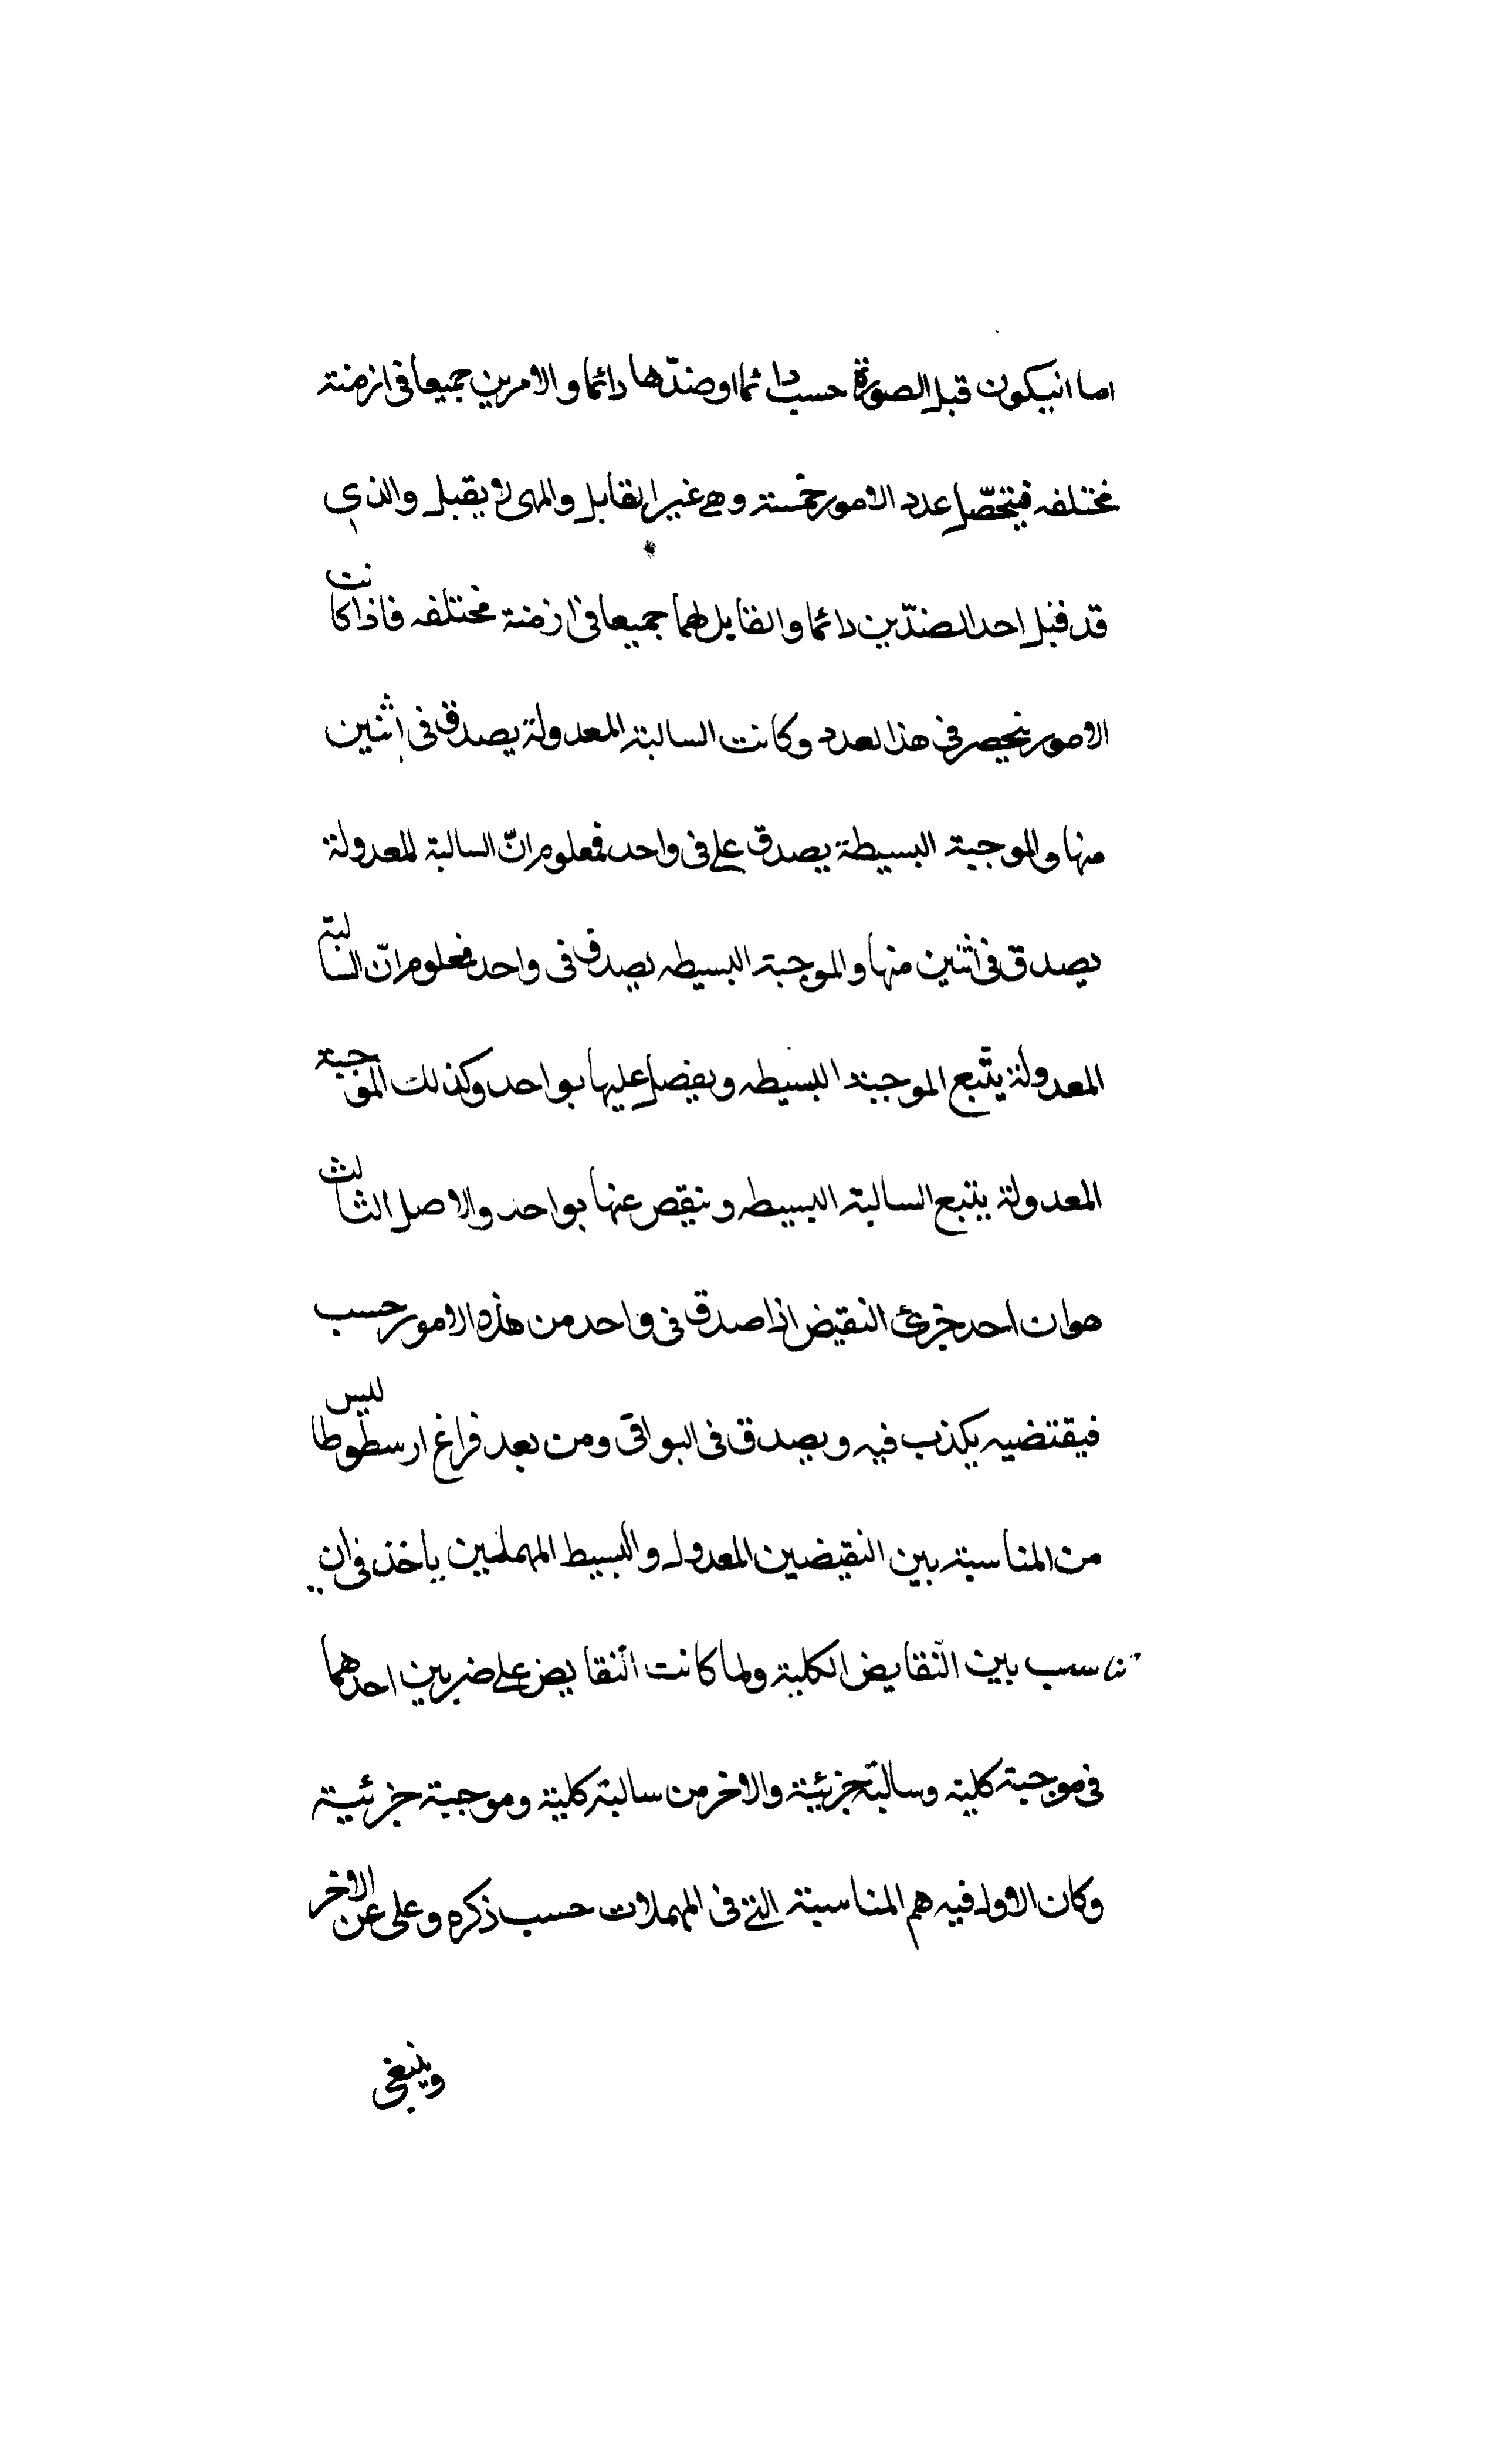 اما انيكون قبل الصورة حسب دائما او ضدّها دائما والامرين جميعا فى ازمنة
مختلفه فيتحصّل عدد الامور خمسة وهى غير القابل والمهى لا يقبل والذى
قد قبل احد الضدّين دائما والقابل لهما جميعا فى ازمنة مختلفه فاذا كانت
الامور ينحصر فى هذا لعدد وكانت السالبة المعدولة يصدق فى اثنين
منها والموجبة البسيطة يصدق على فى واحد فمعلوم انّ السالبة المعدولة
يصدق فى اثنين منها والموجبة البسيطه يصدق فى واحد فمعلوم انّ السالبة
المعدولة يتبع الموجبة البسيطه ويفضل عليها بواحد وكذلك الموجبة
المعدولة يتبع السالبة البسيطه وينقص عنها بواحد والاصل الثالث
هو ان احد جزئى النقيض اذا صدق فى واحد من هذه الامور حسب
فيقتضيه يكذب فيه ويصدق فى البواقى ومن بعد فراغ ارسطوطاليس
من المناسبة بين النقيضين المعدول والبسيط المهملين ياخذ فى ان
يناسب بين النقايض الكلية ولما كانت النقايض على ضربين احدهما
فى موجبة كلية وسالبة جزئية والاخر من سالبة كلية وموجبة جزئية
وكان الاول فيه هم المناسبة التى فى المهملات حسب ذكره وعلى عن الاخر
وينبغى